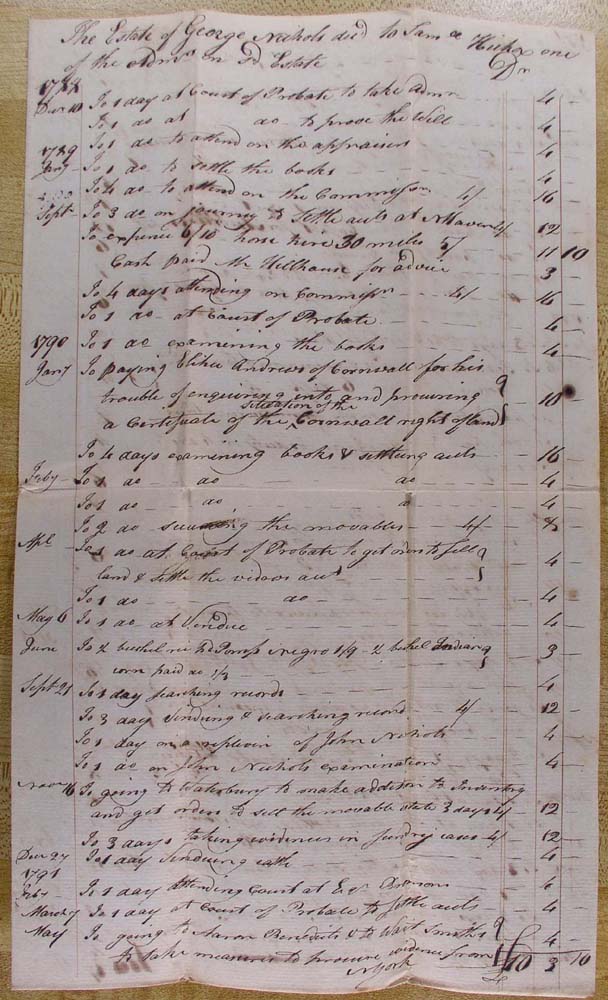 The Estate of George Nichols decd to Sam Hickox one
of the Admrs on sd Estate Dr
Decr 10 To 1 day at Court of Probate to take Admn 4 —
To 1 do at do to prove the Will 4
1789 To 1 do to attend on the appraisers 4
Jany To 1 do to settle the books 4
To 4 do to attend on the Commissrs 4/ 16
Sept To 3 do on journey to settle acts at NHaven 4/ 12
To expence 6/10 horse hire 30 miles 5/ 11 10
Cash paid Mr Hilhouse for advice 3 —
To 4 days attending on Commissrs 4/ 16
To 1 do at Court of Probate 4
1790 To 1 do examening the books 4 —
Jany To paying Elihu Andrews of Cornwall for his
trouble of enquiring into and procuring 10 —
situation of the
a Certificate of the Cornwall right of land
To 4 days examening books & settling acts 16
Feby To 1 do do do 4
To 1 do do do 4
To 2 do the movables 4/ 8 —
Apl To 1 do at Court of Probate to get order to sell 4
land & settle the widows act
To 1 do do 4
May 6 To 1 do at Vendue 4
June To 2 bushel rie pd Pomp Negro 1/9 - 2 bushel Indian 3 —
corn paid do 1/3
Sept 21 To 1 day searching records 4
To 3 day Vendueing & searching record 4/ 12 —
To 1 day on a replevin of John Nichols 4
To 1 do on John Nichols examination 4 —
Novr 16 To going to Waterbury to make addition to Inventory
and get orders to sell the movable state 3 days 4/ 12
To 3 days taking evidences in sundry cases 4/ 12 —
Decr 27 To 1 day Vendueing cattle 4
1791
Feby To 1 day attending Court at Esqr 4
March 7 To 1 day at Court of Probate to settle acts 4
May To going to Aaron Benedicts & to Wait Smiths 4 —
to take measures to procure evidence from
NYork 10 3 10